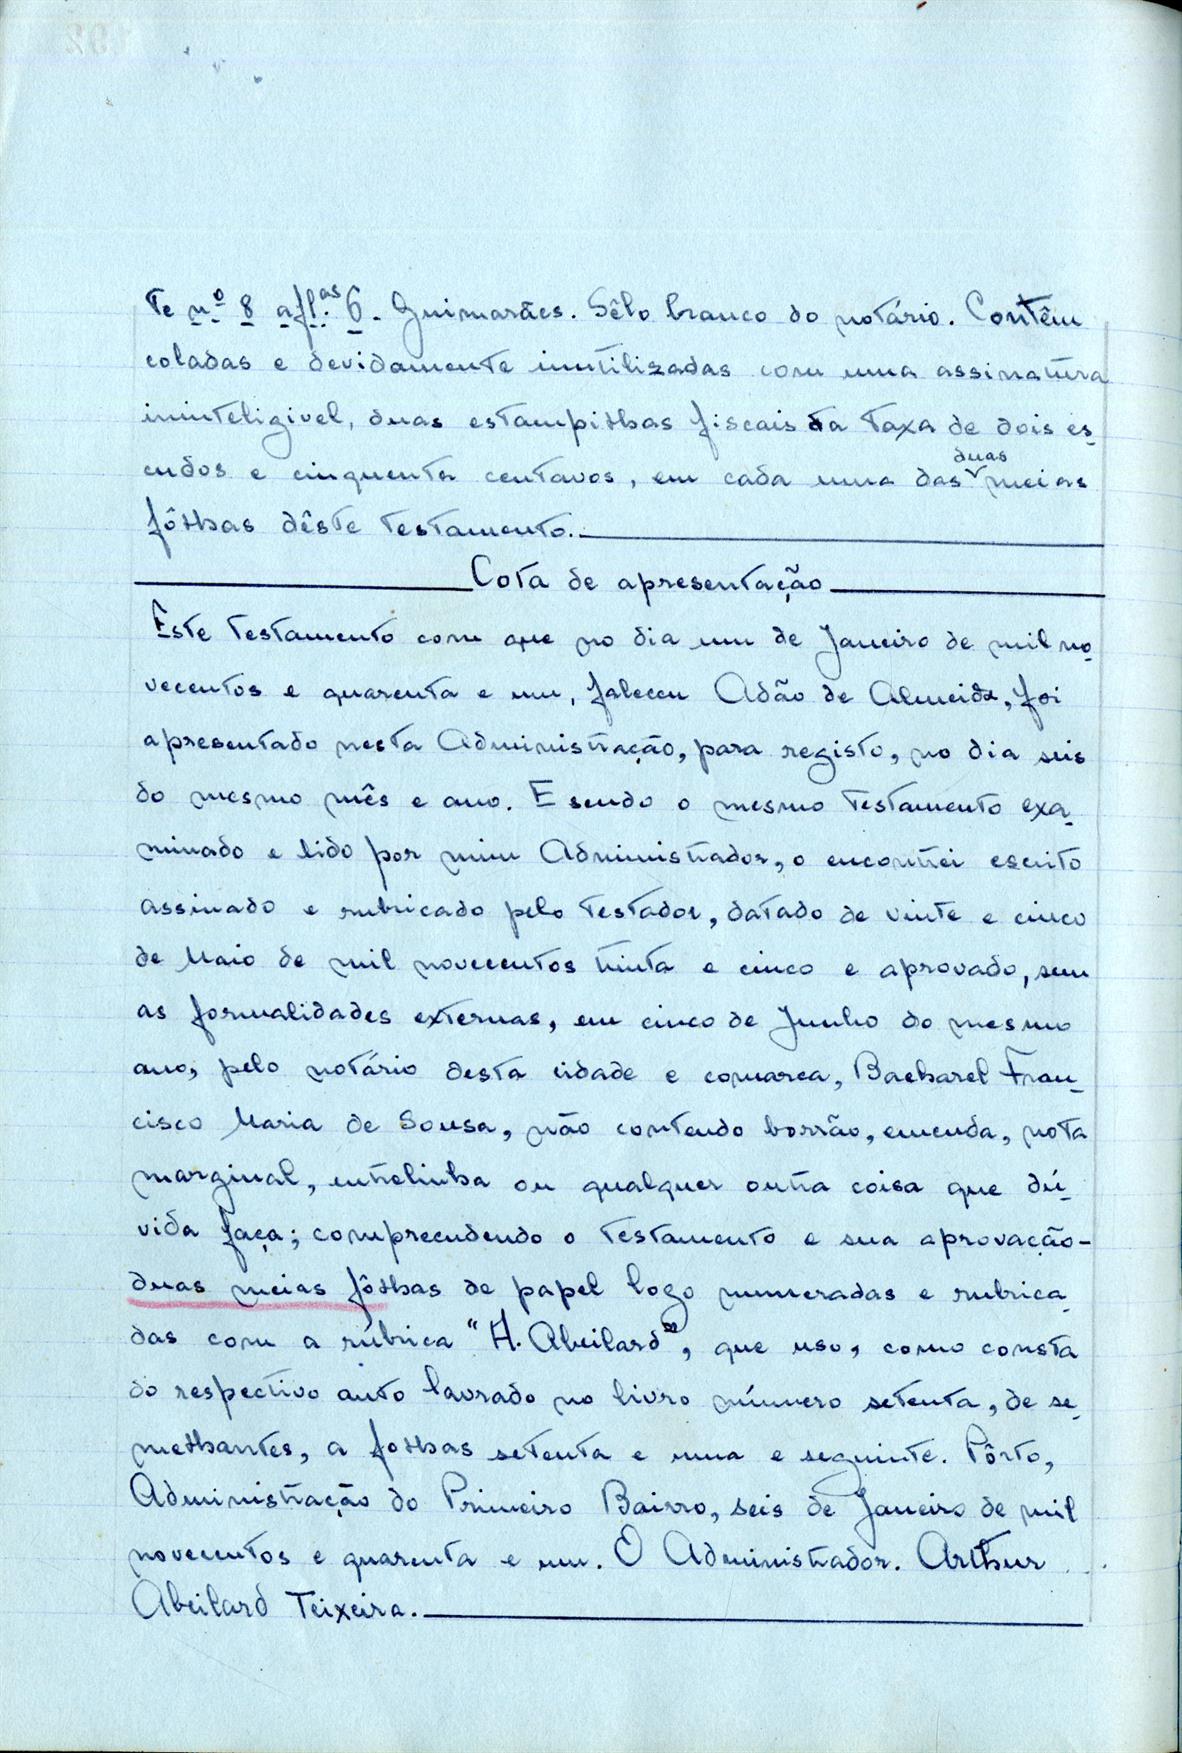 te nº 8 a fl.as 6. Guimarães. Sêlo branco do notário. Contêm
coladas e devidamente inutilizadas com uma assinatura
ininteligivel, duas estampilhas fiscais da taxa de dois es-
cudos e cinquenta centavos, em cada uma das duas meias
fôlhas dêste testamento.
Cota de apresentação
Este testamento com que no dia um de Janeiro de mil no-
vecentos e quarenta e um, faleceu Adão de Almeida, foi
apresentado nesta Administração, para registo, no dia seis
do mesmo mês e ano. E sendo o mesmo testamento exa-
minado e lido por mim Administrador, o encontrei escrito
assinado e rubricado pelo testador, datado de vinte e cinco
de Maio de mil novecentos trinta e cinco e aprovado, sem
as formalidades externas, em cinco de Junho do mesmo
ano, pelo notário desta cidade e comarca, Bacharel Fran-
cisco Maria de Sousa, não contendo borrão, emenda, nota
marginal, entrelinha ou qualquer outra coisa que dú-
vida faça; compreendendo o testamento e sua aprovação-
duas meias fôlhas de papel logo numeradas e rubrica-
das com a rúbrica "A. Abeilard", que uso, como consta
do respectivo auto lavrado no livro número setenta, de se-
melhantes, a folhas setenta e uma e seguinte. Pôrto,
Administração do Primeiro Bairro, seis de Janeiro de mil
novecentos e quarenta e um. O Administrador. Arthur
Abeilard Teixeira.